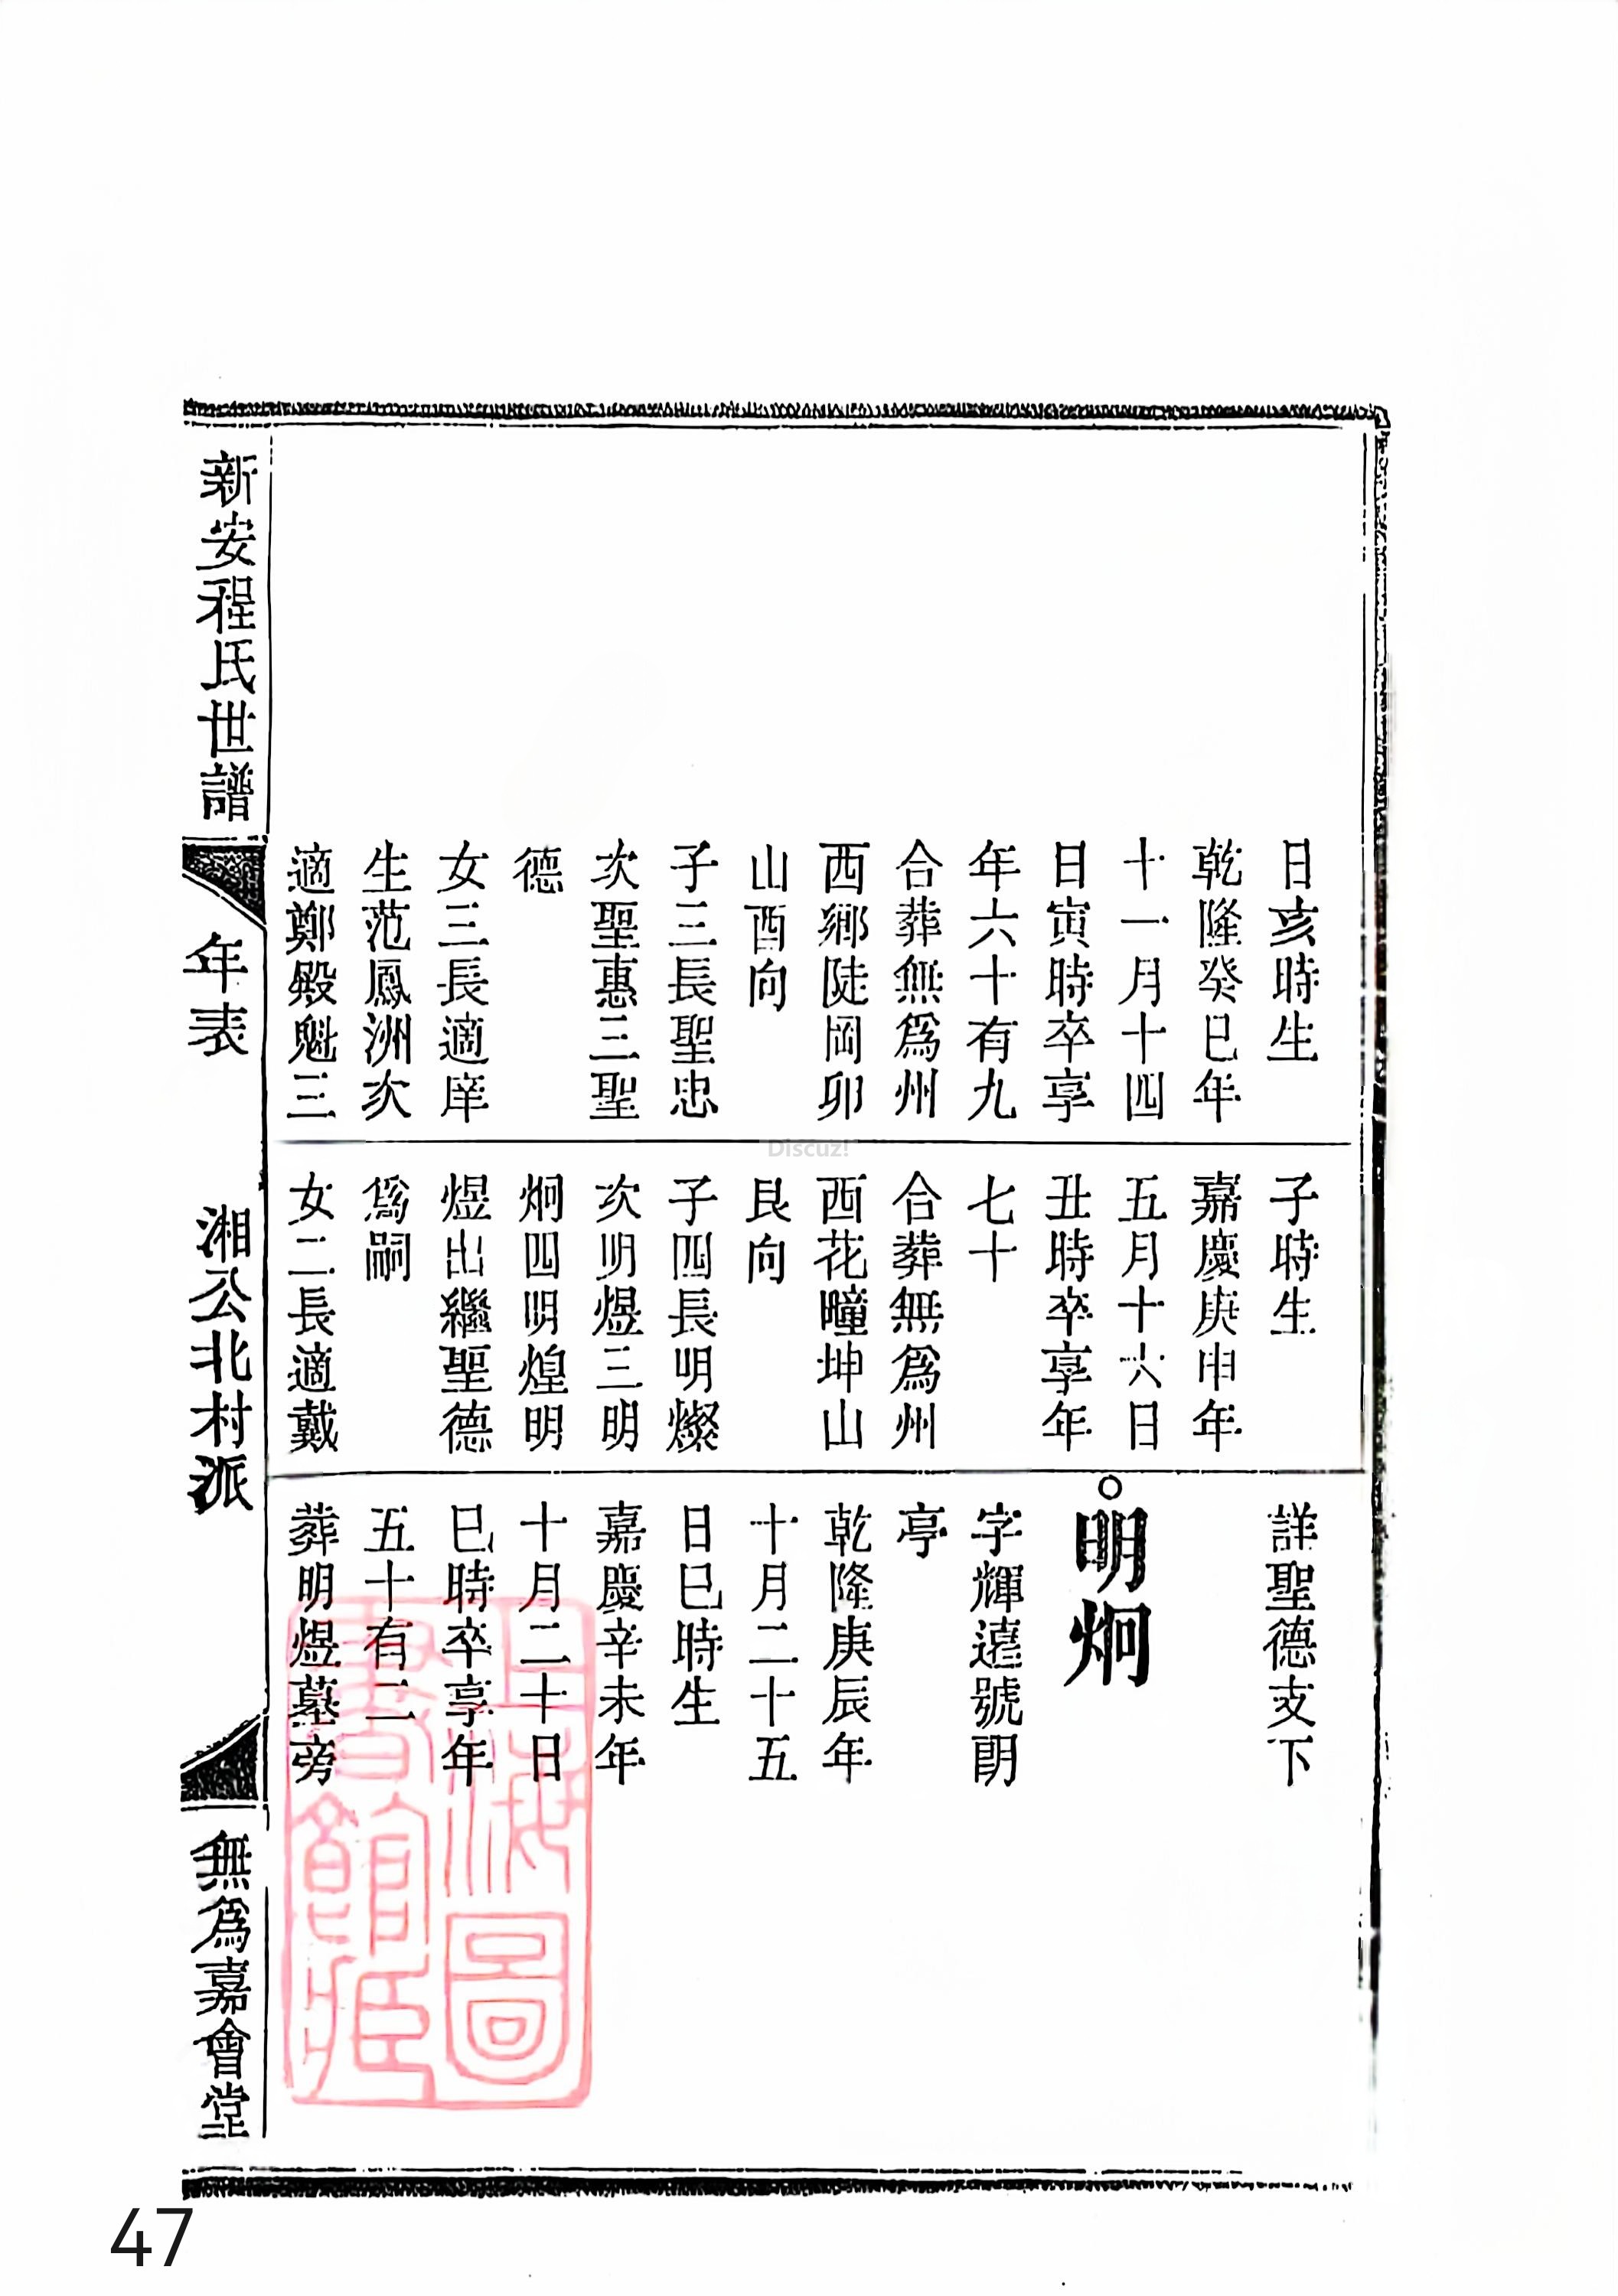 日亥時生
乾隆癸巳年
十一月十四
日寅時卒享
年六十有九
合葬無爲州
西鄉陡岡卯
山酉向
子三長聖忠
次聖惠三聖
德
女三長適庠
生范鳳洲次
適鄭殿魁三
子時生
嘉慶庚申年
五月十六日
丑時卒享年
七十
合葬無爲州
西花疃坤山
艮向
子四長明燦
次明煜三明
炯四明煌明
煜出繼聖德
爲嗣
女二長適戴
詳聖德支下
明炯
字輝遠號明
亭
乾隆庚辰年
十月二十五
日巳時生
嘉慶辛未年
十月二十日
巳時卒享年
五十有二
葬明煜墓旁
新安程氏世譜
年表
湘公北村派
無爲嘉會堂
上海圖
書館藏
Discuz!
47